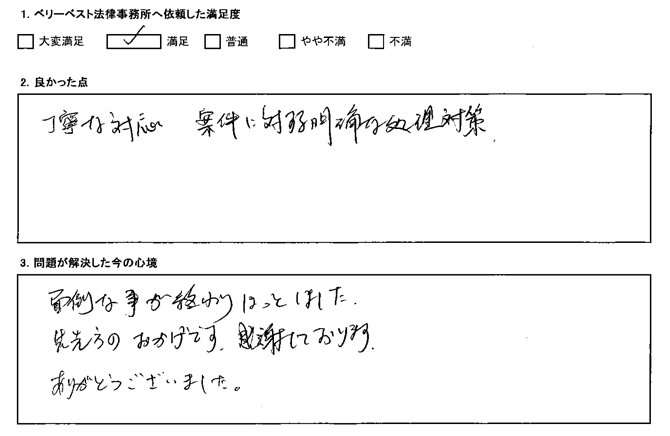 1. ベリーベスト法律事務所へ依頼した満足度
大変満足 満足 普通 やや不満 不満
2. 良かった点
丁寧な対応 案件に対する明確な処理対策
3. 問題が解決した今の心境
面倒な事が終わりほっとしました.
先生方のおかげです. 感謝しております.
ありがとうございました。